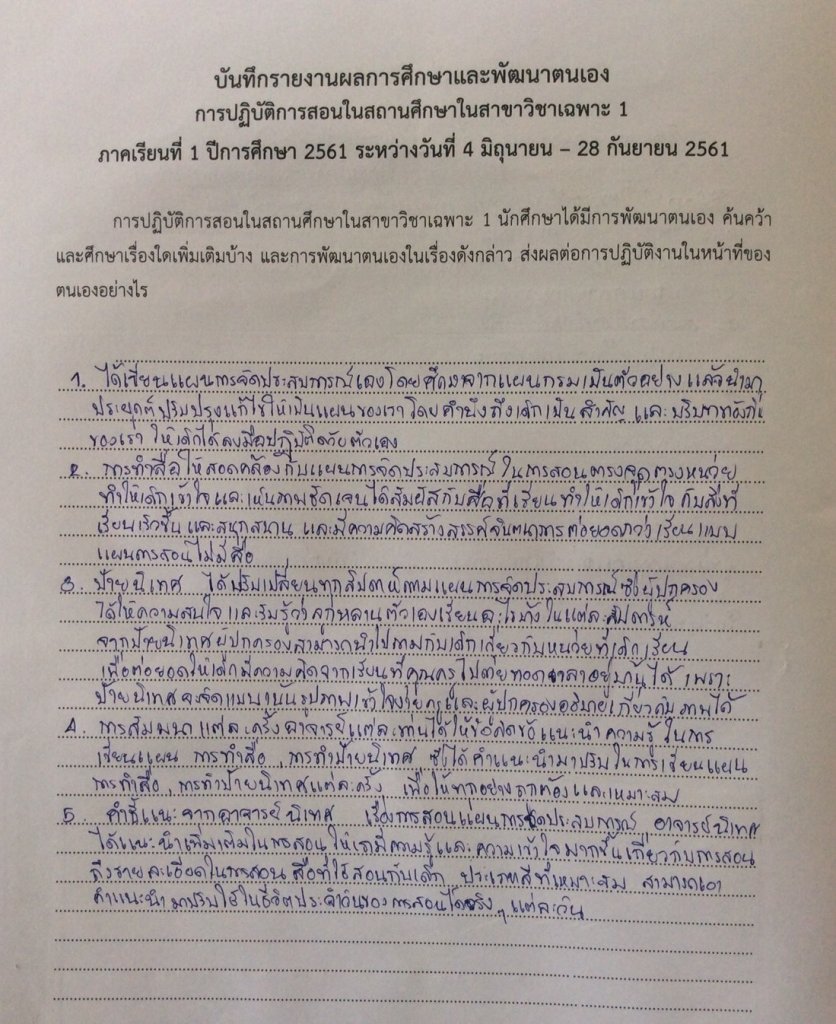 บันทึกรายงานผลการศึกษาและพัฒนาตนเอง
การปฏิบัติการสอนในสถานศึกษาในสาขาวิชาเฉพาะ 1
ภาคเรียนที่ 1 ปีการศึกษา 2561 ระหว่างวันที่ 4 มิถุนายน – 28 กันยายน 2561
การปฏิบัติการสอนในสถานศึกษาในสาขาวิชาเฉพาะ 1 นักศึกษาได้มีการพัฒนาตนเอง ค้นคว้า
และศึกษาเรื่องใดเพิ่มเติมบ้าง และการพัฒนาตนเองในเรื่องดังกล่าว ส่งผลต่อการปฏิบัติงานในหน้าที่ของ
ตนเองอย่างไร
1. ได้เขียนแผนการจัดประสบการณ์เองโดยศึกษาจากแผนกรมเป็นตัวอย่าง แล้วนำมา
ประยุกต์ปรับปรุงแก้ไขให้เป็นแผนของเรา โดยคำนึงถึงเด็กเป็นสำคัญ และบริบท
ของเรา ให้เด็กได้ลงมือปฏิบัติด้วยตัวเอง
2. การทำสื่อให้สอดคล้องกับแผนการจัดประสบการณ์ ในการสอนตรงจุดตรงหน่วย
ทำให้เด็กเข้าใจและเห็นภาพชัดเจนได้สัมผัสกับสื่อที่เรียนทำให้เด็กเข้าใจกับสิ่งที่
เรียนเร็วขึ้น และสนุกสนาน และมีความคิดสร้างสรรค์จินตนาการต่อยอดกว่าเรียนแบบ
แผนการสอนไม่มีสื่อ
3. ป้ายนิเทศ ได้ปรับเปลี่ยนทุกสัปดาห์ตามแผนการจัดประสบการณ์ซึ่งผู้ปกครอง
ได้ให้ความสนใจ และรับรู้ว่าลูกหลานตัวเองเรียนอะไรบ้าง ในแต่ละสัปดาห์
จากป้ายนิเทศผู้ปกครองสามารถนำไปถามกับเด็กเกี่ยวกับหน่วยที่เด็กเรียน
เพื่อต่อยอดให้เด็กมีความคิดจากเรียนที่คุณครูไปถ่ายทอดเวลาอยู่บ้านได้ เพราะ
ป้ายนิเทศจะจัดแบบเน้นรูปภาพเข้าใจง่าย และผู้ปกครองอธิบายเกี่ยวกับภาพได้
4. การสัมมนาแต่ละครั้งอาจารย์แต่ละท่านได้ให้ข้อคิดข้อแนะนำความรู้ ในการ
เขียนแผน การทำสื่อ, การทำป้ายนิเทศ ซึ่งได้คำแนะนำมาปรับในการเขียนแผน
การทำสื่อ, การทำป้ายนิเทศแต่ละครั้ง เพื่อให้ทุกอย่างถูกต้องและเหมาะสม
5. คำชี้แนะจากอาจารย์นิเทศ เรื่องการสอนแผนการจัดประสบการณ์ อาจารย์นิเทศ
ได้แนะนำเพิ่มเติมในการสอนให้เรามีความรู้และความเข้าใจมากขึ้นเกี่ยวกับการสอน
ถึงรายละเอียดในการสอน สื่อที่ใช้สอนกับเด็ก ประเภทสีที่เหมาะสม สามารถเอา
คำแนะนำมาปรับใช้ในชีวิตประจำวันของการสอนได้จริงๆ แต่ละวัน